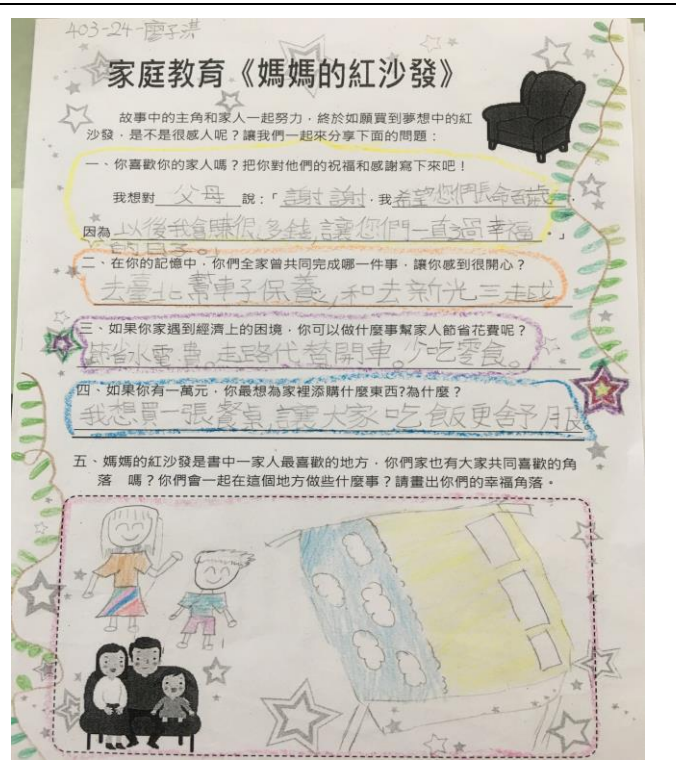 403-24-廖子淇
家庭教育《媽媽的紅沙發》
故事中的主角和家人一起努力，終於如願買到夢想中的紅
沙發，是不是很感人呢？讓我們一起來分享下面的問題：
一、你喜歡你的家人嗎？把你對他們的祝福和感謝寫下來吧！
我想對 父母 說：「 謝謝，我希望您們長命百歲，
因為 以後我會賺很多錢,讓您們一直過幸福 。」
的日子。
二、在你的記憶中，你們全家曾共同完成哪一件事，讓你感到很開心？
去臺北幫車子保養,和去新光三越
三、如果你家遇到經濟上的困境，你可以做什麼事幫家人節省花費呢？
節省水電費。走路代替開車。少吃零食。
四、如果你有一萬元，你最想為家裡添購什麼東西?為什麼？
我想買一張餐桌,讓大家吃飯更舒服
五、媽媽的紅沙發是書中一家人最喜歡的地方，你們家也有大家共同喜歡的角
落 嗎？你們會一起在這個地方做些什麼事？請畫出你們的幸福角落。